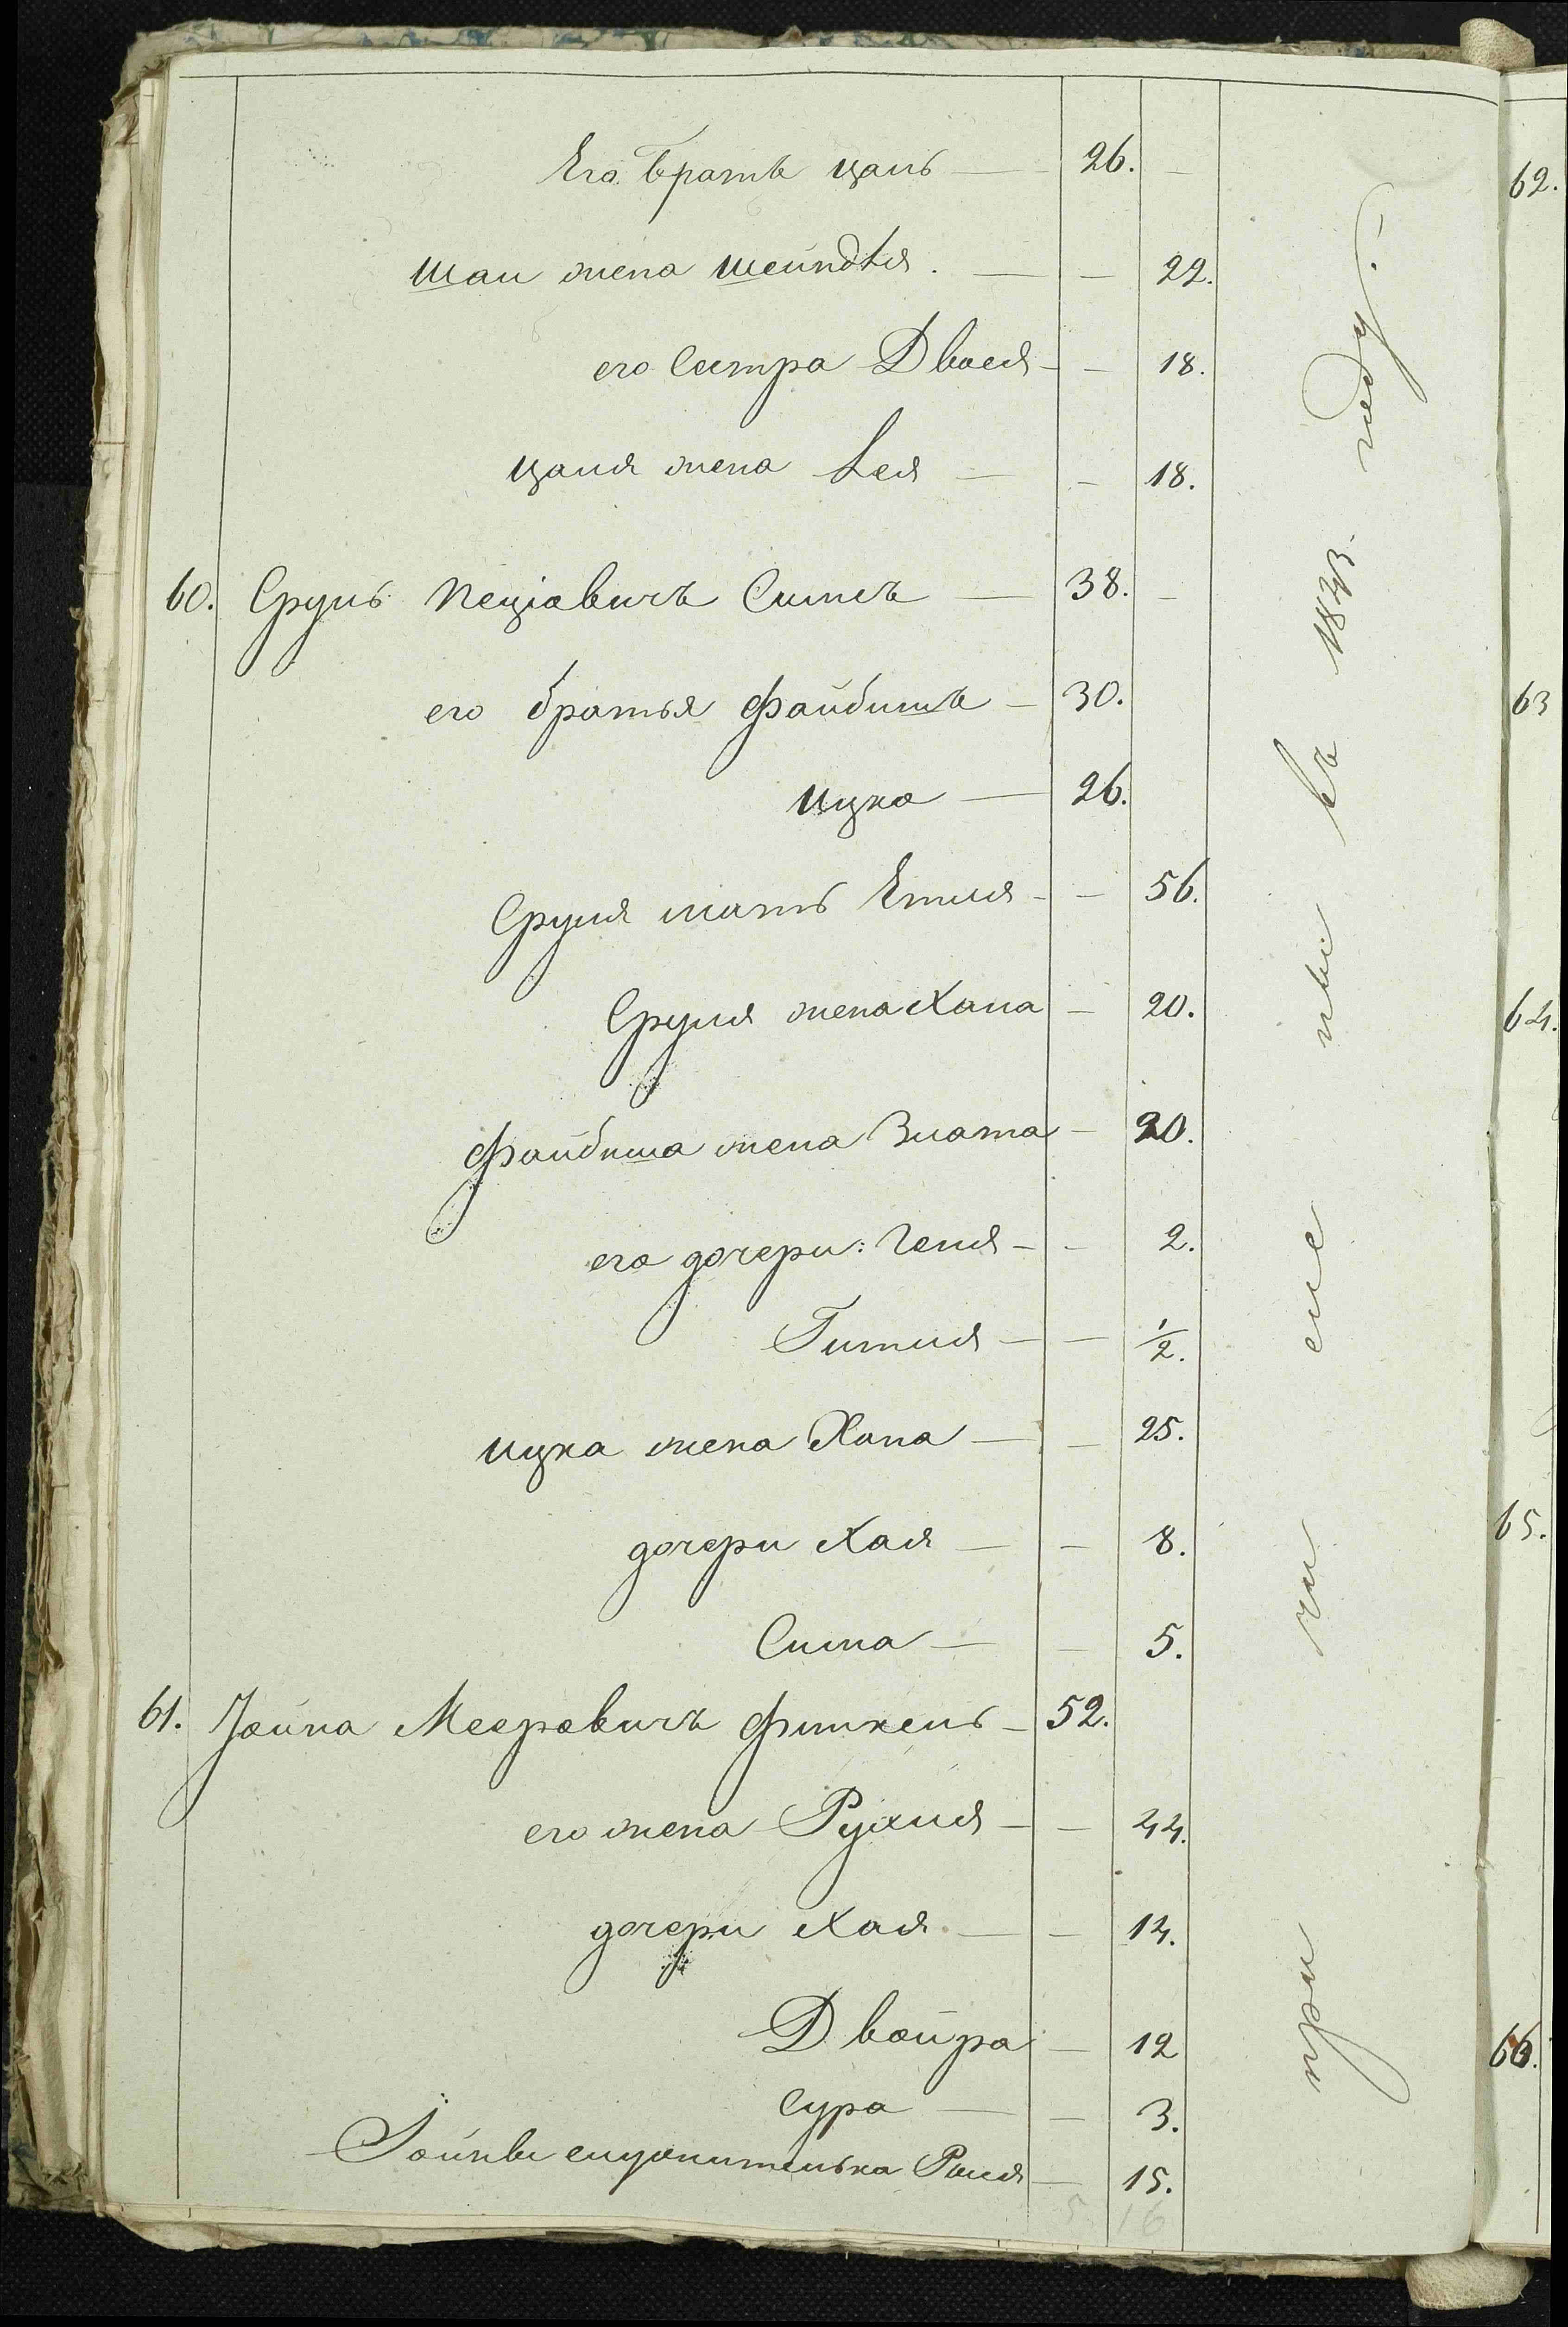 Его братъ цаль — 26. —
Шаи жена Шейндля. — — 22.
его Сестра Двося — — 18.
цаля жена Лея — — 18.
60. Сруль Пециовичъ — 38. —
его братья Файбишъ — 30.
Ицко — 26.
Сруля мать Етля — — 56.
Сруля жена Хана — 20.
Файбиша жена Злата — 20.
его дочери: Геня — — 2.
Гитля — — 1/2.
Ицка жена Хана — — 25.
дочери Хая — — 8.
Сима — — 5.
61. Іойна Мееровичъ Фишкель — 52.
его жена Рухля — — 44.
дочери Хая — — 14.
Двойра — 12
Сура — — 3.
Іойны служителька — 15.
5 16
причислены въ году.
62.
63
64.
65.
66.